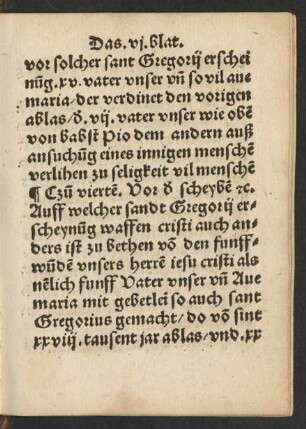 Das. vj. blat.
vor solcher sant Gregorij erschei
nūg. xv. vater vnser vñ so vil aue
maria/der verdinet den vorigen
ablas/ð. vij. vater vnser wie obē
von babst Pio dem andern auß
ansuchūg eines innigen menschē
verlihen zu seligkeit vil menschē
¶ Czū viertē. Vor ð scheybē ꝛc.
Auff welcher sandt Gregorij er-
scheynūg waffen cristi auch an-
ders ist zu bethen vō den funff-
wūdē vnsers herrē iesu cristi als
nēlich funff Vater vnser vñ Aue
maria mit gebetlei so auch sant
Gregorius gemacht/do vō sint
xxviij. tausent jar ablas/vnd. xx